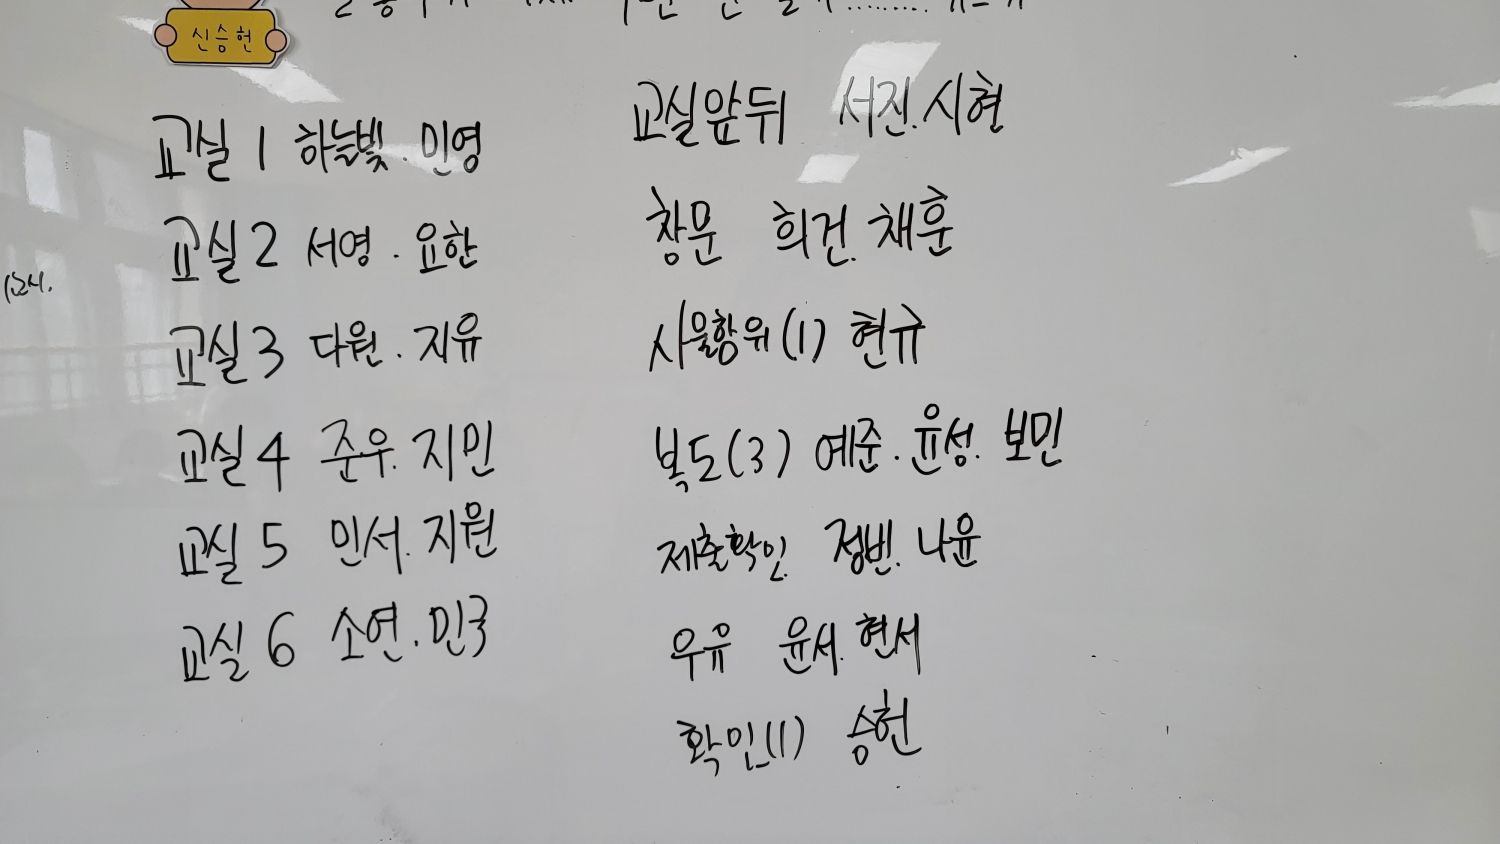 신승헌
교실 1 하늘빛 . 민영
교실 2 서영 . 요한
교실 3 다원 . 지유
교실 4 준우. 지민
교실 5 민서. 지원
교실 6 소연 . 민규
교실앞뒤 서진. 시현
창문 희건. 채훈
사물함위(1) 현규
복도(3) 예준 . 윤성. 보민
제출확인. 정빈. 나윤
우유 윤서. 현서
확인(1) 승헌